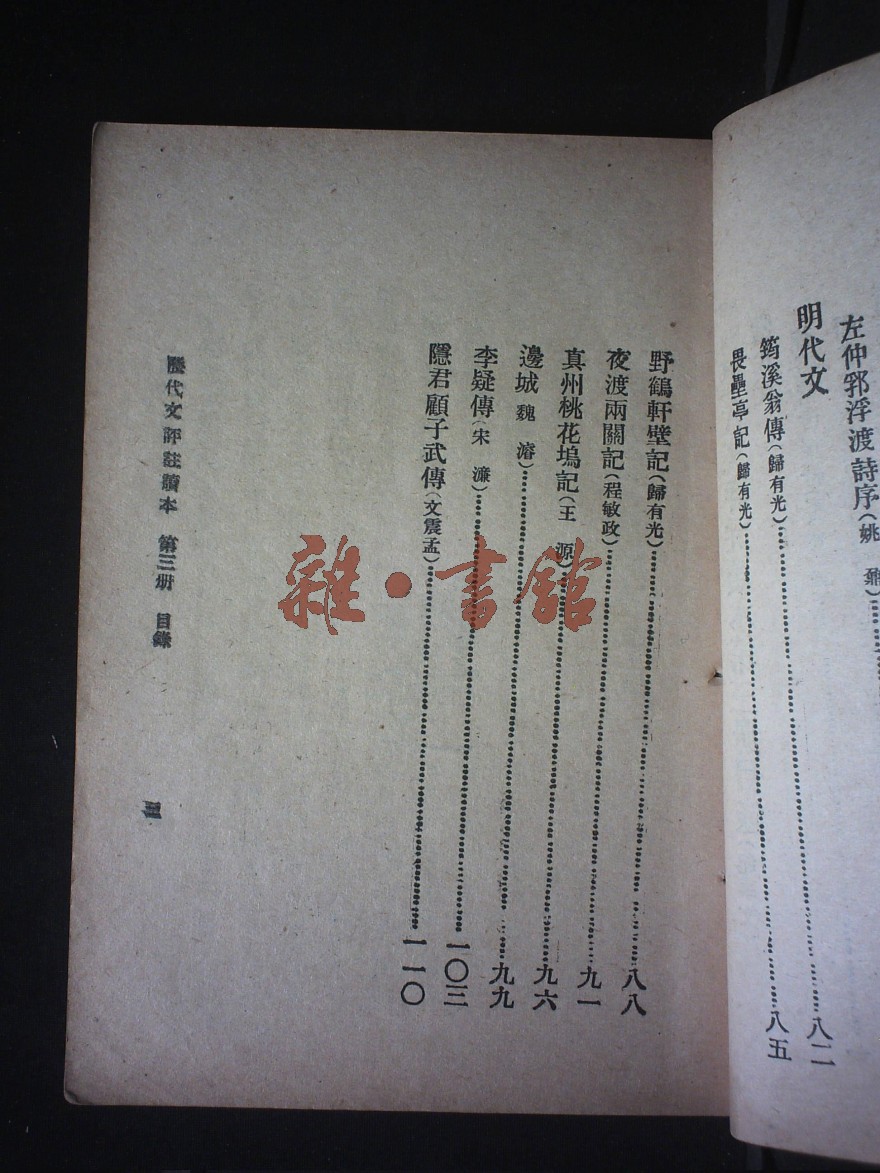 左仲郛浮渡詩序(姚　鼐)
明代文
筠溪翁傳(歸有光)八二
畏壘亭記(歸有光)八五
野鶴軒壁記(歸有光)八八
夜渡兩關記(程敏政)九一
真州桃花塢記(王　源)九六
邊城(魏　濬)九九
李疑傳(宋　濂)一〇三
隱君顧子武傳(文震孟)一一〇
歷代文評註讀本　第三册　目錄
三
雜·書館